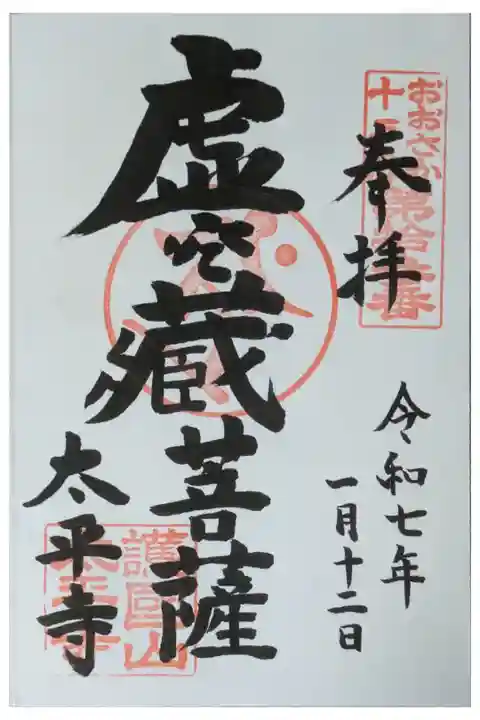 奉拝
おおさか十三佛
第拾三番
令和七年
一月十二日
虚空藏菩薩
太平寺
護国山
太平寺